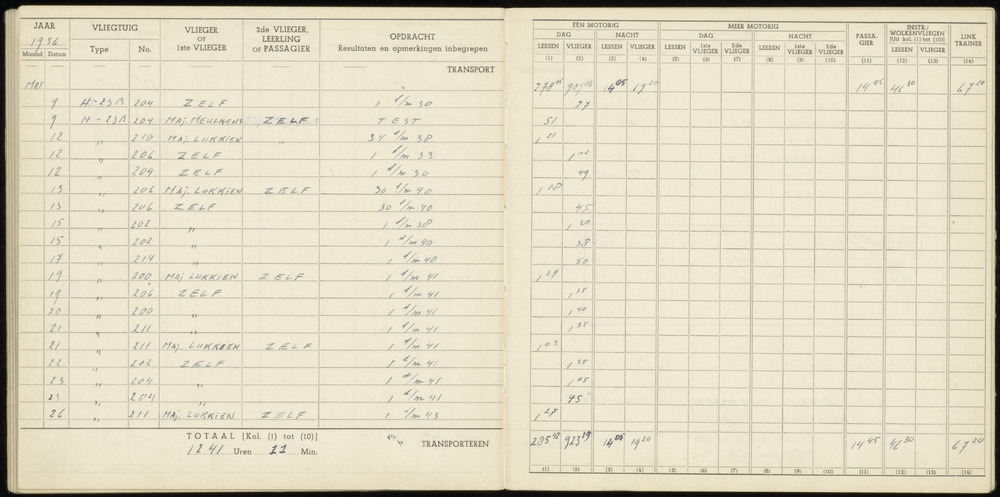 JAAR VLIEGTUIG VLIEGER OF 1ste VLIEGER 2de VLIEGER, LEERLING OF PASSAGIER OPDRACHT Resultaten en opmerkingen inbegrepen
1956
Maand Datum Type No.
ÉÉN MOTORIG MEER MOTORIG PASSAGIER INSTR./WOLKENVLIEGEN [Uit kol. (1) tot (10)] LINK TRAINER
DAG NACHT DAG NACHT
LESSEN VLIEGER LESSEN VLIEGER LESSEN 1ste VLIEGER 2de VLIEGER LESSEN 1ste VLIEGER 2de VLIEGER LESSEN VLIEGER
(1) (2) (3) (4) (5) (6) (7) (8) (9) (10) (11) (12) (13) (14)
TRANSPORT
MRT 14 05 19 20 14 45 46 30 67 20
9 H-23B 204 ZELF 1 t/m 30 27
9 H-23B 204 MAJ. MEULKENS ZELF TEST 51
12 " 210 MAJ. LUKKIEN " 34 t/m 38 1 21
12 " 206 ZELF 1 t/m 33
12 " 204 ZELF 1 t/m 30 49
13 " 206 MAJ. LUKKIEN ZELF 30 t/m 40
13 " 206 ZELF 30 t/m 40 45
15 " 202 " 1 t/m 38 1 30
15 " 202 " 1 t/m 40 38
17 " 214 " 1 t/m 40 50
19 " 200 MAJ. LUKKIEN ZELF 1 t/m 41
19 " 206 ZELF 1 t/m 41 1 35
20 " 200 " 1 t/m 41 1 40
21 " 211 " 1 t/m 41 1 35
21 " 211 MAJ. LUKKIEN ZELF 1 t/m 41 1 03
22 " 202 ZELF 1 t/m 41 1 35
23 " 204 " 1 t/m 41 1 05
23 " 204 " 1 t/m 41 45
26 " 211 MAJ. LUKKIEN ZELF 1 t/m 43 1 27
TOTAAL [Kol. (1) tot (10)] TRANSPORTEREN
1241 Uren 11 Min.
285 42 923 19 14 05 19 20 14 45 46 30 67 20
(1) (2) (3) (4) (5) (6) (7) (8) (9) (10) (11) (12) (13) (14)